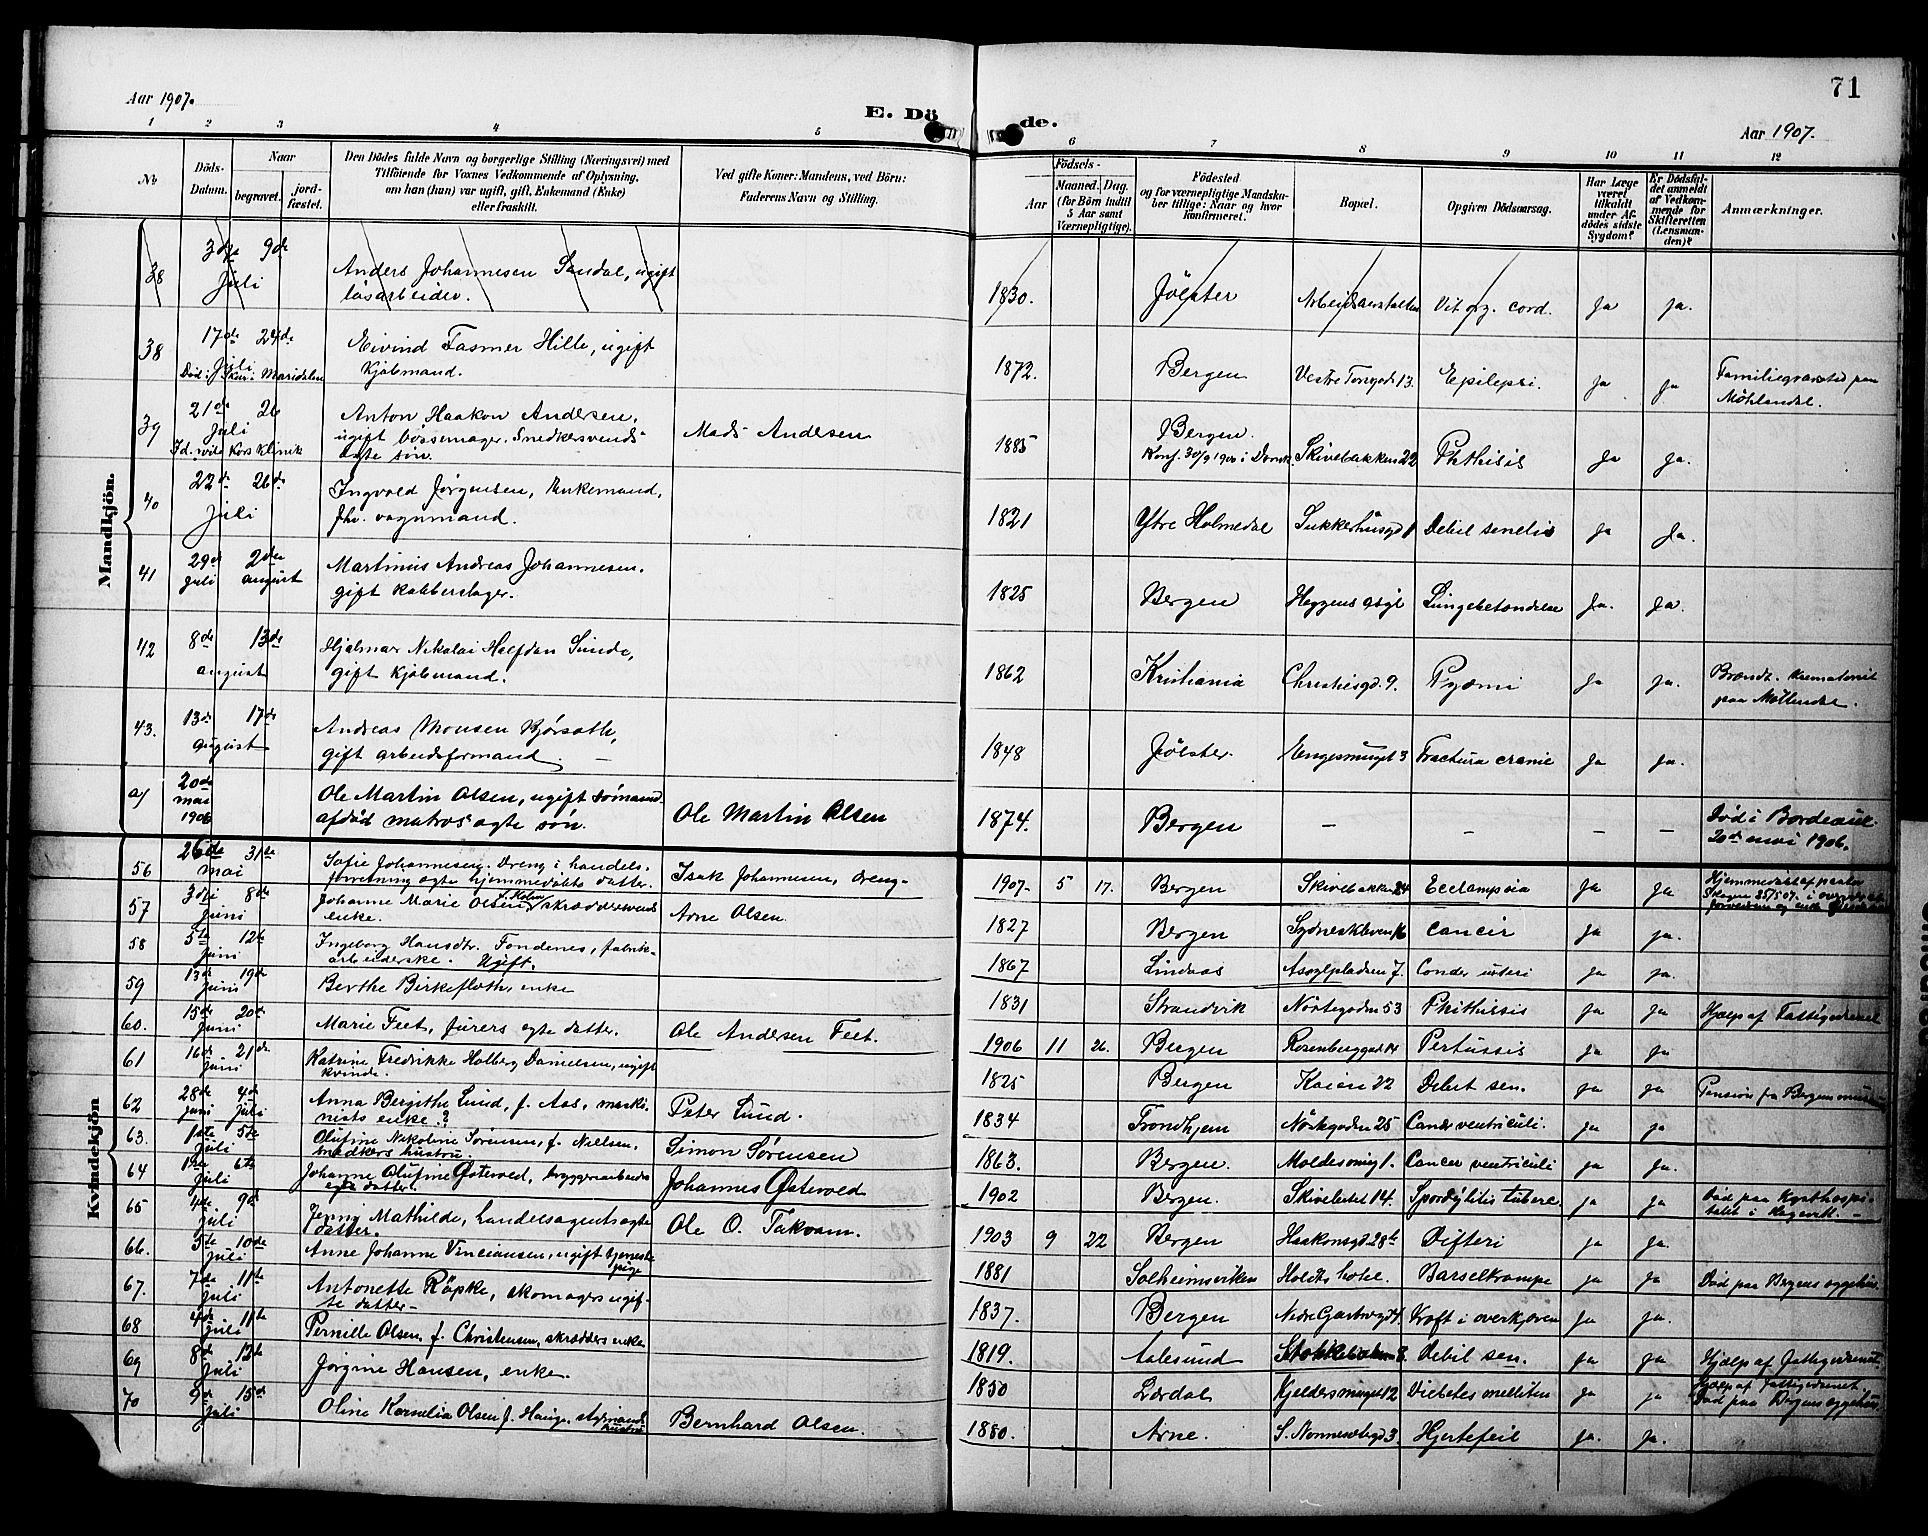 71
Aar 1907.
E. Dö de.
Aar 1907.
1 2 3 4 5 6 7 8 9 10 11 12
No
Döds-Datum.
Naar
begravet. jord-fæstet.
Den Dödes fulde Navn og borgerlige Stilling (Næringsvei) med
Tilföiende for Voxnes Vedkommende af Oplysning,
om han (hun) var ugift, gift, Enkemand (Enke)
eller fraskilt.
Ved gifte Koner: Mandens, ved Börn:
Faderens Navn og Stilling.
Födsels-
Aar Maaned. Dag.
(for Börn indtil
5 Aar samt
Værnepligtige).
Födested
og for værnepligtige Mandsku-
ber tillige: Naar og hvor
konfirmeret.
Bopæl.
Opgiven Dödsaarsag.
Har Læge
været
tilkaldt
under Af-
dödes sidste
Sygdom?
Er Dödsfal-
det anmeldt
af Vedkom-
mende for
Skifteretten
(Lensman-
den)?
Anmærkninger.
Mandkjön.
38 3die Juli 9de Anders Johannesen Sandal, ugift
løsarbeider. 1830. Jölster Arbeidsanstalten Vit org. cord. Ja ja.
38 17de Juli 24de Eivind Fasmer Hille, ugift
Kjöbmand. 1872. Bergen Vestre Torvgade 13. Epilepsi. ja ja Familiegravsted paa
Möhlendal.
39 21de Juli 26 Anton Haakon Andersen,
ugift bøssemager, Snedkersvends
ægte søn. Mads Andersen 1885 Bergen.
Konf. 30/9 1900 i Domk. Skivebakken 22 Phthisis ja ja.
40 22de Juli 26de Ingvald Jørgensen, Enkemand,
fhv. vognmand. 1821 Ytre Holmedal Sukkerhusgd 1 Debil senelis ja Ja.
41 29de juli 2den august Martinus Andreas Johannesen.
gift kobberslager. 1825 Bergen Lungebetændelse Ja. Ja.
42 8de august 13de Hjalmar Nikolai Halfdan Sunde,
gift Kjöbmand. 1862 Kristiania Christiesgd. 9. Pyæmi ja ja. Brændt. Krematoriet
paa Möllendal.
43. 13de august 17de Andreas Monsen
gift arbeidsformand. 1848 Jölster. Engesmuget 3 Fractura cranie Ja ja.
a) 20de mai 1906 Ole Martin Olsen, ugift sømand
afdöd matros ægte søn. Ole Martin Olsen 1874. Bergen – – – – Död i Bordeaux
20de mai 1906.
Kvindekjön
56 26de mai 31te Sofie Johannesen. Dreng i handels-
forretning ægte hjemmedøbte datter. Isak Johannesen, dreng- 1907 5 17. Bergen Skivebakken 24 Eclampsia ja Ja
57 3die Juni 8de Johanne Marie Olsen skræddersvends
enke. Arne Olsen. 1827 Bergen Sydneskleven 16 Cancer ja ja.
58 5te Juni 12te Ingeborg Hansdtr. Fondenes, fabrik-
arbeiderske. Ugift. 1867 Lindaas Asylpladsen 7. ja ja.
59 13de Juni 19de Berthe Birkefloth, enke 1831 Strandvik 53 Phthisis ja ja Hjælp af Fattigvæsenet
60. 15de Juni 20de Marie Feet, fürers ægte datter. Ole Andersen Feet. 1906 11 26. Bergen Rosenberggd 14 Pertussis ja ja
61 16de juni 21de Katrine Fredrikke Holberg Danielsen, ugift
kvinde. 1825 Bergen Kaien 22 Debit sen. ja ja Pension fra Bergens museum
62 28de juni 4de juli Anna Bergithe Lund, f. Aas, maski-
nists enke? Peter Lund. 1834 Trondhjem 25 Cancer ventriculi. ja ja
63. 1ste juli 5te Olufine Nikoline Sørensen, f. Nielsen,
snedkers hustru. Simon Sørensen 1863. Bergen. 1. Cancer ventriculi ja ja
64 1ste juli 6te Johanne Olufine Østervold, bryggeriarbeiders
ægte datter. Johannes Østervold 1902 Bergen. 14. Spondylitis tuberc. ja ja Död paa Kysthospi-
talet i Hagevik. –
65 4de juli 9de Jenny Mathilde, handelsagents ægte
datter. Ole O. Takvam. 1903 9 22 Bergen Haakonsgd 28b Difteri ja ja.
66. 5te juli 10de Anne Johanne Vinciansen, ugift tjeneste-
pige 1881 Solheimsviken Holdts hotel. Barselkrampe ja ja Död paa Bergens sygehus.
67. 7de juli 11te Antonette Röpke, skomagers ugif-
te datter – 1837. Bergen ja ja.
68 4de juli 11te Pernille Olsen, f. Christensen, skrædders enke 1819. Aalesund Debil sen. ja ja Hjælp af Fattigvæsenet
69 8de juli 13de Jørgine Hansen, enke. 1850 Lærdal Kjeldersmuget 12 Diabetes mellitus ja ja Hjælp af Fattigvæsenet
Död paa Bergens sygehus.
70 9de juli 15de Oline Kornelia Olsen f. Hauge, styrmands
hustru Bernhard Olsen. 1880. Arne. 3. Hjertefeil ja. ja.